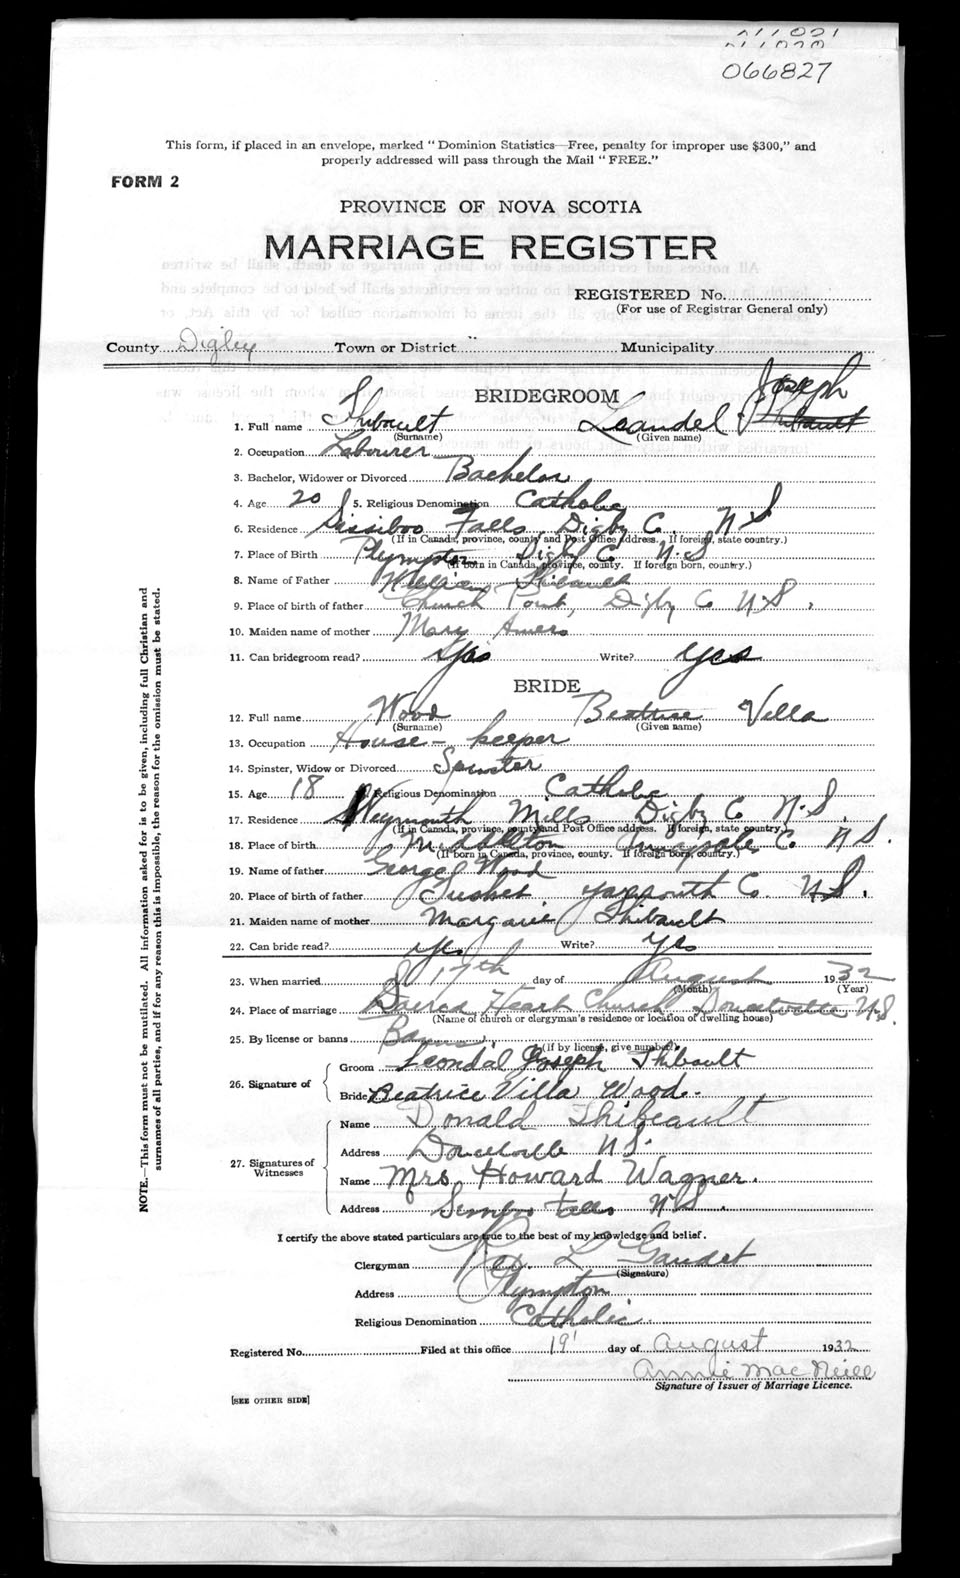 066827
This form, if placed in an envelope, marked "Dominion Statistics—Free, penalty for improper use $300," and
properly addressed will pass through the Mail "FREE."
FORM 2
PROVINCE OF NOVA SCOTIA
MARRIAGE REGISTER
REGISTERED No.
(For use of Registrar General only)
County Digby Town or District Municipality
BRIDEGROOM
1. Full name Thibault Leandel Joseph Thibault
(Surname) (Given name)
2. Occupation Labourer
3. Bachelor, Widower or Divorced Bachelor
4. Age 20 5. Religious Denomination Catholic
6. Residence Sissiboo Falls, Digby Co. N S
(If in Canada, province, county and Post Office address. If foreign, state country.)
7. Place of Birth Plympton Digby Co N.S
(If born in Canada, province, county. If foreign born, country.)
8. Name of Father William Thibault
9. Place of birth of father Church Point, Digby Co N.S.
10. Maiden name of mother Mary
11. Can bridegroom read? Yes Write? Yes
BRIDE
12. Full name Wood Beatrice Vella
(Surname) (Given name)
13. Occupation House-keeper
14. Spinster, Widow or Divorced Spinster
15. Age 18 Religious Denomination Catholic
17. Residence Weymouth Mills Digby Co N.S.
(If in Canada, province, county and Post Office address. If foreign, state country.)
18. Place of birth Middleton Annapolis Co N S.
(If born in Canada, province, county. If foreign born, country.)
19. Name of father George Wood
20. Place of birth of father Tusket, Yarmouth Co N.S.
21. Maiden name of mother Margaret Thibault
22. Can bride read? Yes Write? Yes
23. When married 17th day of August 1932
(Month) (Year)
24. Place of marriage Sacred Heart Church Doucetville N.S.
(Name of church or clergyman's residence or location of dwelling house)
25. By license or banns Banns.
(If by license, give number)
26. Signature of
Groom Leondal Joseph Thibault
Bride Beatrice Villa Wood.
27. Signatures of
Witnesses
Name Donald Thibeault
Address N S.
Name Mrs. Howard Wagner.
Address Falls N S.
I certify the above stated particulars are true to the best of my knowledge and belief.
Clergyman Rev. L Gaudet
(Signature)
Address Plympton
Religious Denomination Catholic
Registered No. Filed at this office 19 day of August 1932
Annie MacNeill
Signature of Issuer of Marriage Licence.
[SEE OTHER SIDE]
NOTE.—This form must not be mutilated. All information asked for is to be given, including full Christian and
surnames of all parties, and if for any reason this is impossible, the reason for the omission must be stated.